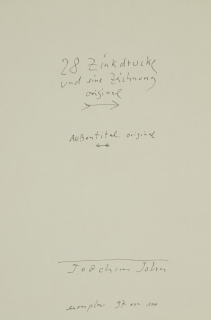 28 Zinkdrucke
und eine Zeichnung
original
Außentitel original
Joachim John
exemplar 97 von 100